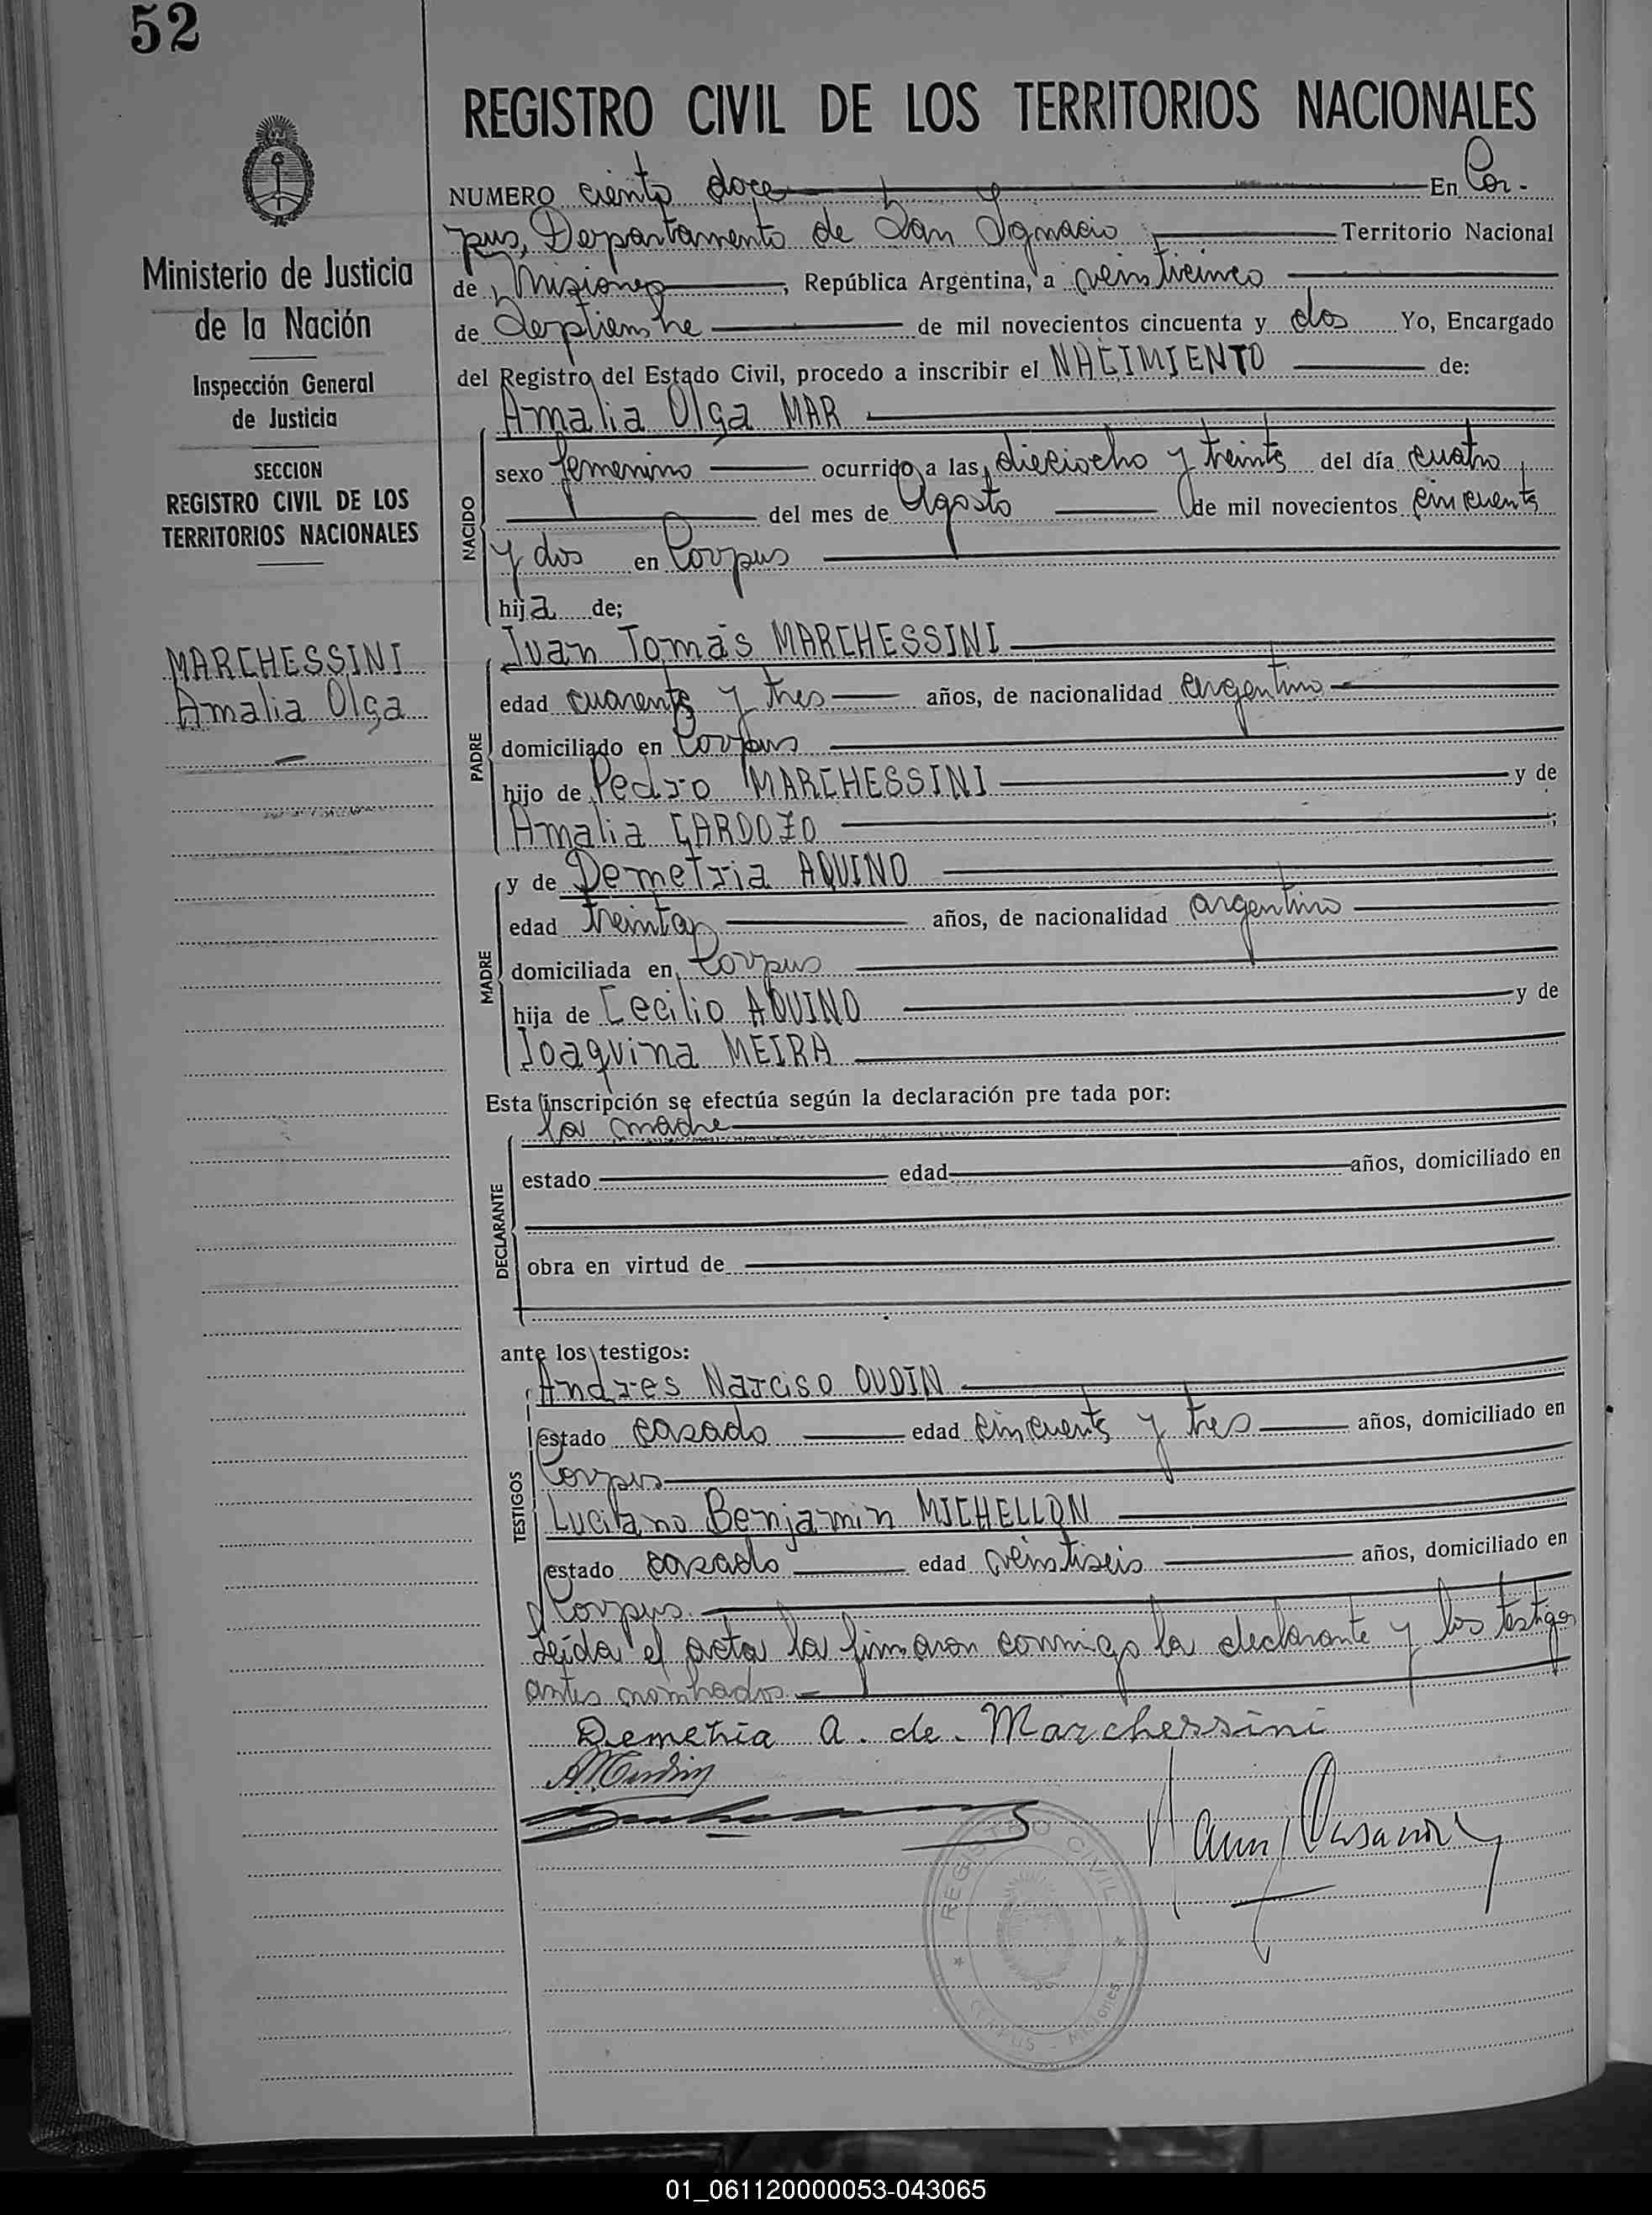 52
REGISTRO CIVIL DE LOS TERRITORIOS NACIONALES
NUMERO ciento doce En Cor-
pus, Departamento de San Ignacio Territorio Nacional
de Misiones, República Argentina, a veinticinco
de Septiembre de mil novecientos cincuenta y dos Yo, Encargado
del Registro del Estado Civil, procedo a inscribir el NACIMIENTO de:
Amalia Olga MAR
sexo femenino ocurrido a las dieciocho y treinta del día cuatro
del mes de Agosto de mil novecientos cincuenta
y dos en Corpus
hija de;
NACIDO
Juan Tomás MARCHESSINI
edad cuarenta y tres años, de nacionalidad argentino
domiciliado en Corpus
hijo de Pedro MARCHESSINI y de
Amalia CARDOZO;
PADRE
y de Demetria AQUINO
edad treinta años, de nacionalidad argentino
domiciliada en Corpus
hija de Cecilio AQUINO y de
Joaquina MEIRA
MADRE
Esta inscripción se efectúa según la declaración pre tada por:
la madre
estado edad años, domiciliado en
obra en virtud de
DECLARANTE
ante los testigos:
Andres Narciso OUDIN
estado casado edad cincuenta y tres años, domiciliado en
Corpus
Luciano Benjamin MICHELLON
estado casado edad veintiseis años, domiciliado en
Corpus.
TESTIGOS
Leida el acta la firmaron conmigo la declarante y los testigos
antes nombrados.
Demetria A. de Marchessini
Ministerio de Justicia
de la Nación
Inspección General
de Justicia
SECCION
REGISTRO CIVIL DE LOS
TERRITORIOS NACIONALES
MARCHESSINI
Amalia Olga
REGISTRO CIVIL
CORPUS - Misiones
01_061120000053-043065